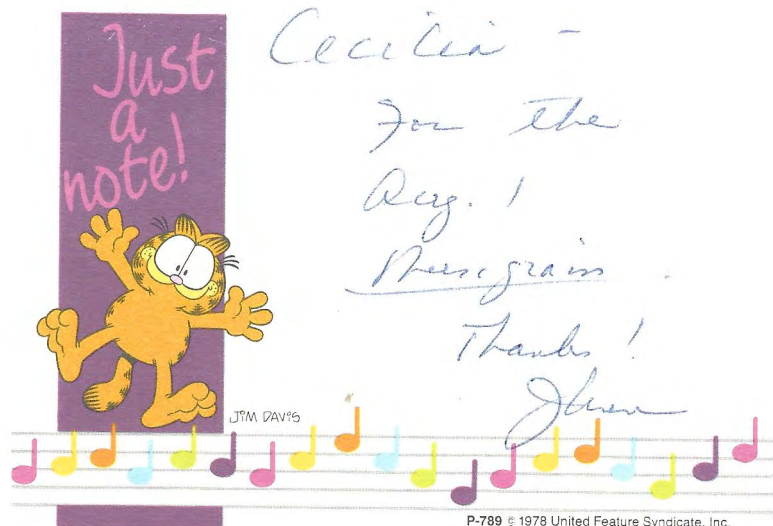 Just
a
note!
Cecilia -
For the
Aug. 1
Newsgram.
Thanks!
JIM DAVIS
P-789 © 1978 United Feature Syndicate, Inc.